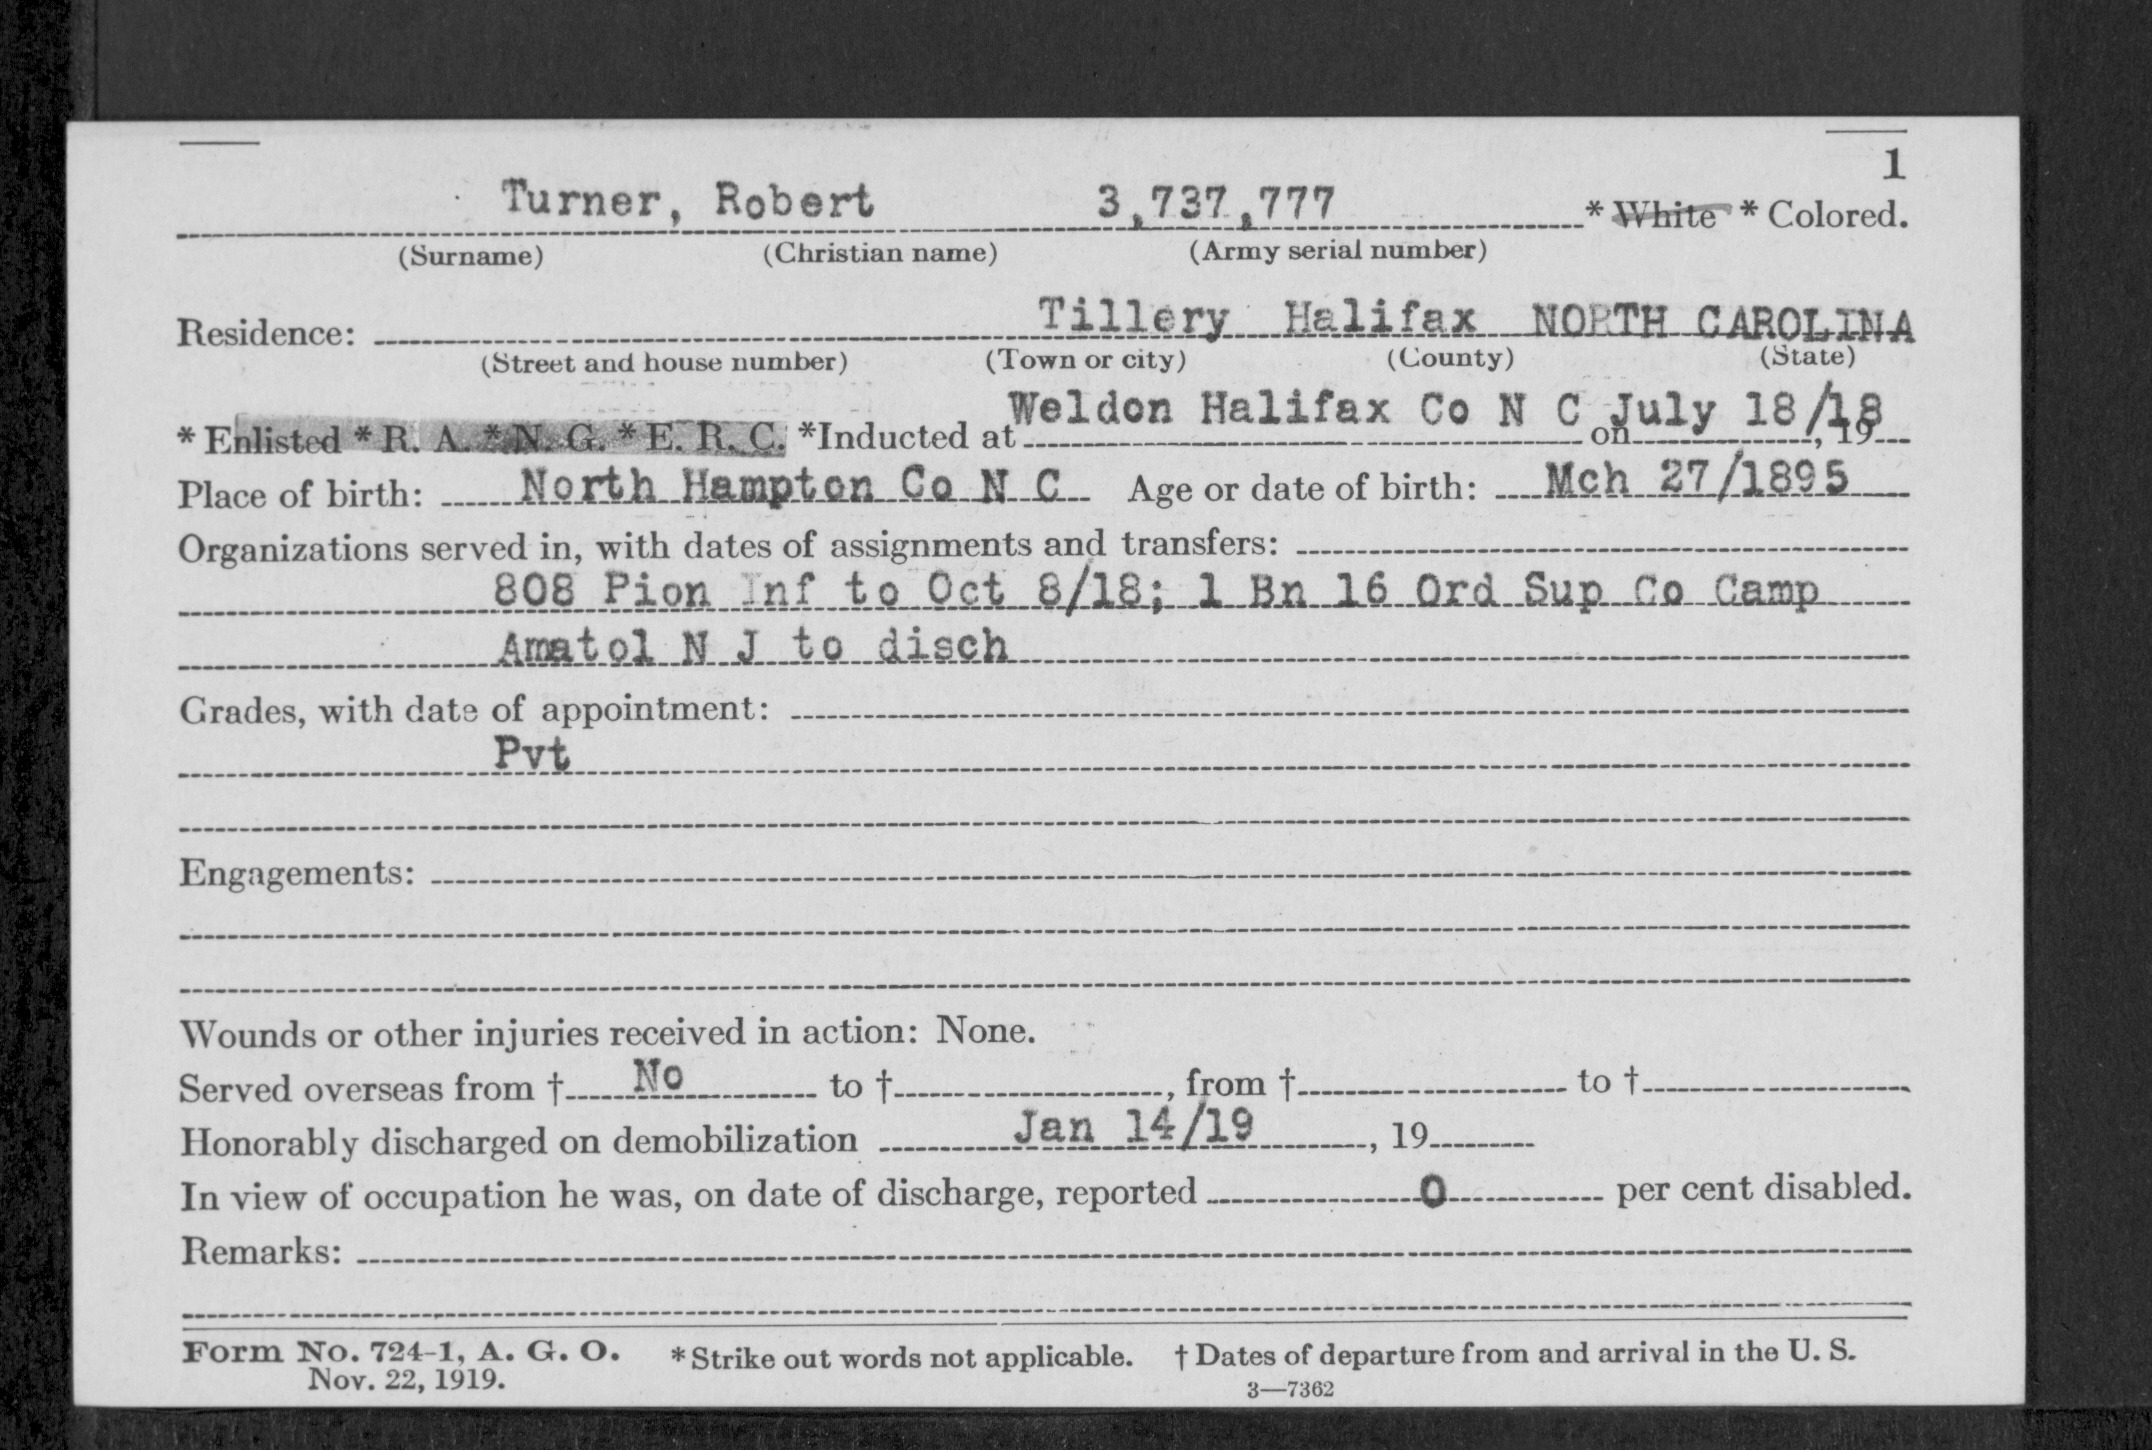 1
Turner, Robert 3,737,777 * White * Colored.
(Surname) (Christian name) (Army serial number)
Residence: Tillery Halifax NORTH CAROLINA
(Street and house number) (Town or city) (County) (State)
* Enlisted * R. A. * N. G. * E. R. C. *Inducted at Weldon Halifax Co N C on July 18/18, 19
Place of birth: North Hampton Co N C Age or date of birth: Mch 27/1895
Organizations served in, with dates of assignments and transfers:
808 Pion Inf to Oct 8/18; 1 Bn 16 Ord Sup Co Camp
Amatol N J to disch
Grades, with date of appointment:
Pvt
Engagements:
Wounds or other injuries received in action: None.
Served overseas from † No to †, from † to †
Honorably discharged on demobilization Jan 14/19, 19
In view of occupation he was, on date of discharge, reported 0 per cent disabled.
Remarks:
Form No. 724-1, A. G. O. * Strike out words not applicable. † Dates of departure from and arrival in the U. S.
Nov. 22, 1919. 3—7362